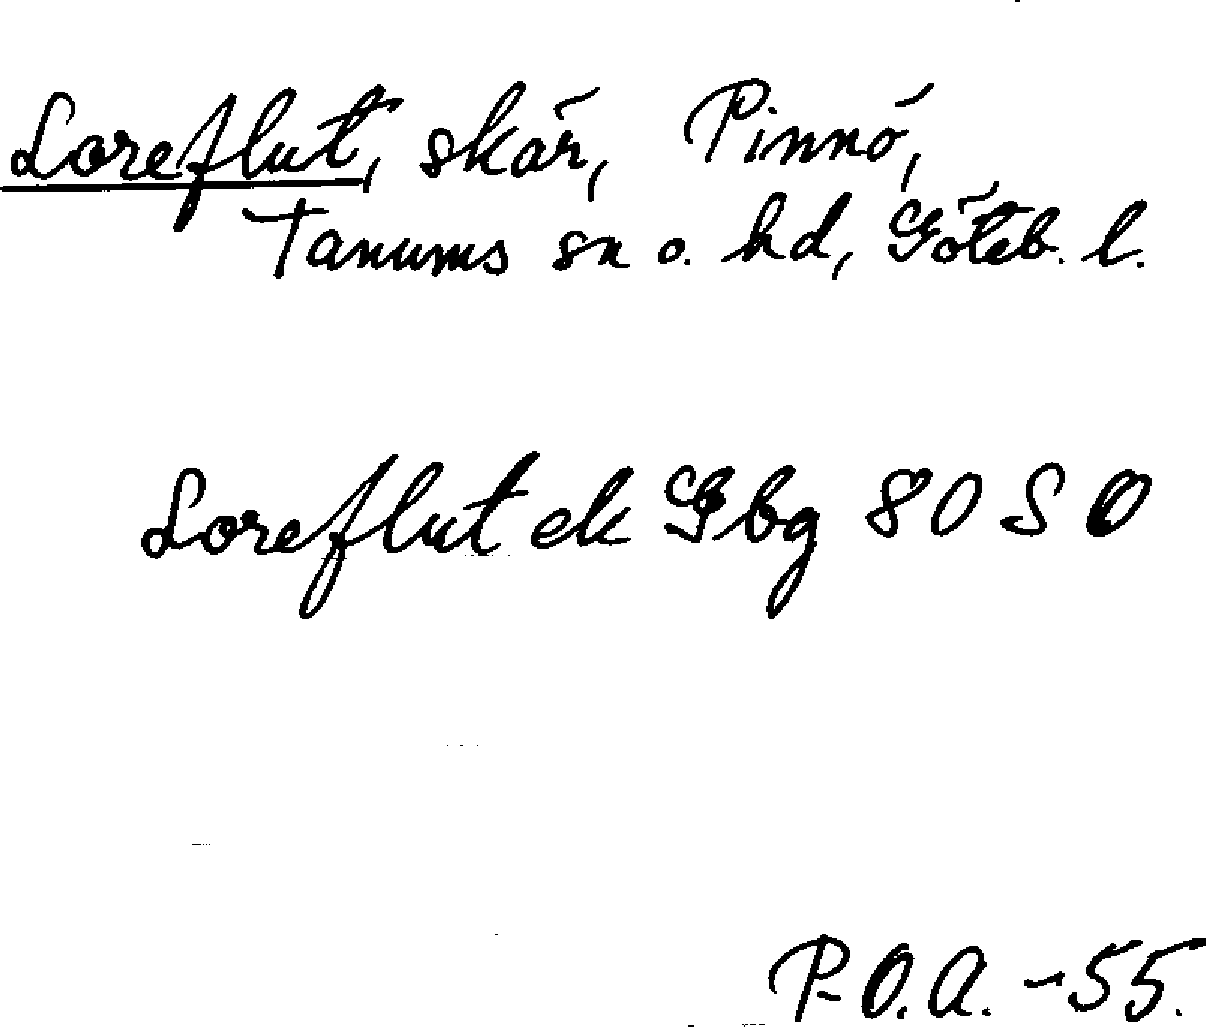 Loreflut, skär, Pinnö,
Tanums sn o. hd, Göteb. l.
Loreflut ek Gbg 80 S O
P-O.A. -55.